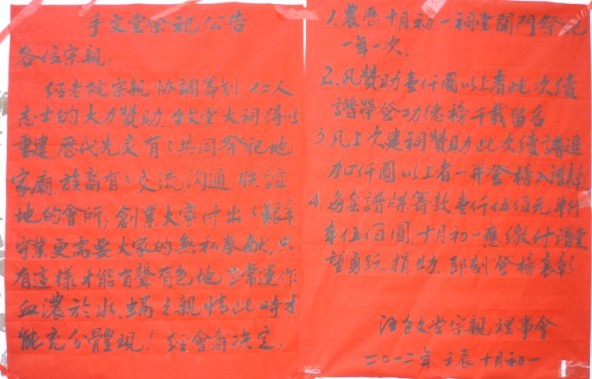 文堂祭祀公告
各位宗親:
经老院宗親协調筹划.仁人
志士的大力赞助.文堂大祠得以
重建.历代先灵有了共同祭祀地
家廟.族裔有了交流沟通联誼
地的會所.創業大家付出了艱辛
守業更需要大家的無私奉献.只
有這樣才能有聲有色地正常運作
血濃於水.蝸之親情此時才
能充分體現!经會商决定.
1.農歷十月初一祠堂開門祭祀
一年一次.
2.凡赞助壹仟圓以上者此次續
譜學登功德榜千載留名
3.凡上次建祠赞助此次續譜追
加仟圓以上者一并登榜入譜
4.每套譜牒筹款壹仟伍佰元单行
本伍佰圓.十月初一應繳付譜堂
望勇跃捐助.即刻登榜表彰
文堂宗親理事會
二〇一二年壬辰十月初一